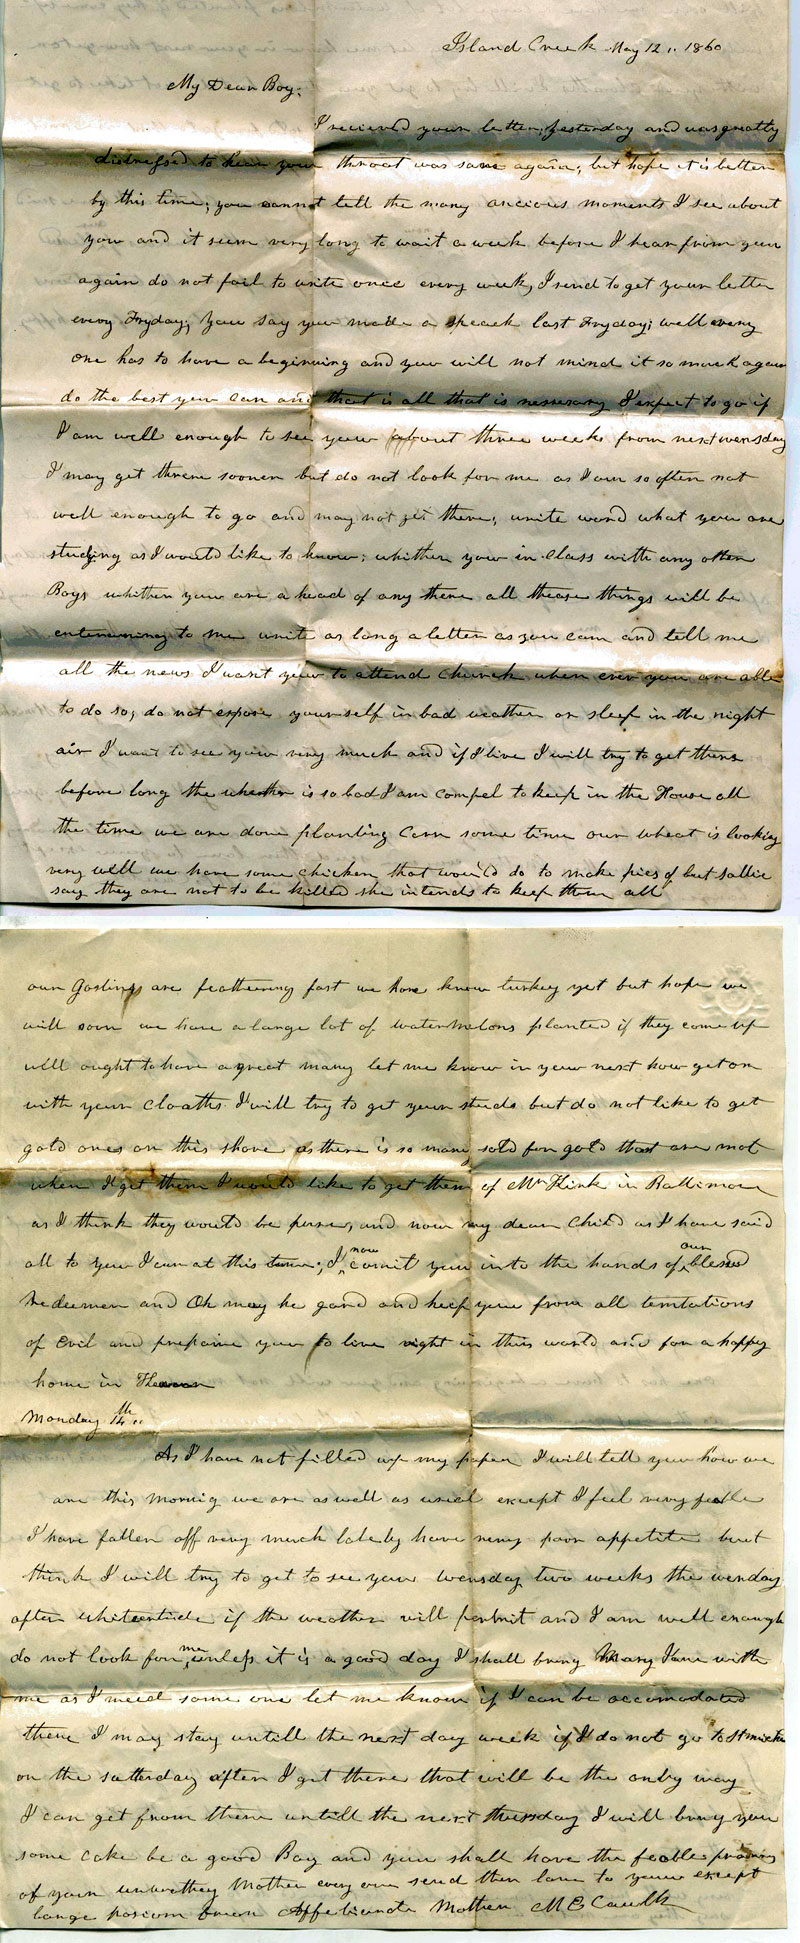 Island Creek May 12,, 1860
My Dear Boy;
I recieved your letter, yesterday and was greatly
distressed to hear your throat was sore again; but hope it is better
by this time; you cannot tell the many ancious moments I see about
you and it seem very long to wait a week before I hear from you
again do not fail to write once every week, I send to get your letter
every Fryday; You say you made a speach last Fryday; well every
one has to have a beginning and you will not mind it so much again
do the best you can and that is all that is nessesary I expect to go if
I am well enough to see you about three weeks from next wensday
I may get there sooner but do not look for me as I am so often not
well enough to go and may not get there; write word what you are
studying as I would like to know; whither you in class with any other
Boys whither you are a head of any there all thease things will be
to me write as long a letter as you can and tell me
all the news I want you to attend Church when ever you are able
to do so; do not expose yourself in bad weather or sleep in the night
air I want to see you very much and if I live I will try to get there
before long the whether is so bad I am compel to keep in the House all
the time we are done planting corn some time our wheat is looking
very well we have some chicken that would do to make pies of but Sallie
say they are not to be killed she intends to keep them all
our Goslings are feathering fast we have know turkey yet but hope we
will soon we have a large lot of watermelons planted if they come up
will ought to have a great many let me know in your next how get on
with your cloaths I will try to get your studs but do not like to get
gold ones on this shore as there is so many sold for gold that are not
when I get them I would like to get them of Mr in Baltimore
as I think they would be and now my dear Child as I have said
all to you I can at this time; I now comit you into the hands of our blessed
Redeemer and Oh may he gard and keep you from all temtations
of Evil and prepaire you to live right in this world and for a happy
home in Heaven
Monday 14th,,
As I have not filled up my paper I will tell you how we
are this mornig we are as well as usial except I feel very feeble
I have fallen off very much lately have very poor appetite but
think I will try to get to see you wensday two weeks the wensday
after whitesentide if the weather will permit and I am well enough
do not look for me unless it is a good day I shall bring Mary Jane with
me as I need some one let me know if I can be accomodated
there I may stay untill the next day week if I do not go to St
on the satterday after I get there that will be the only way
I can get from there untill the next thuesday I will bring you
some cake be a good Boy and you shall have the feable prairs
of your unworthey Mother every one send ther love to you except
large posiom from Affectionate Mother M E Caulk